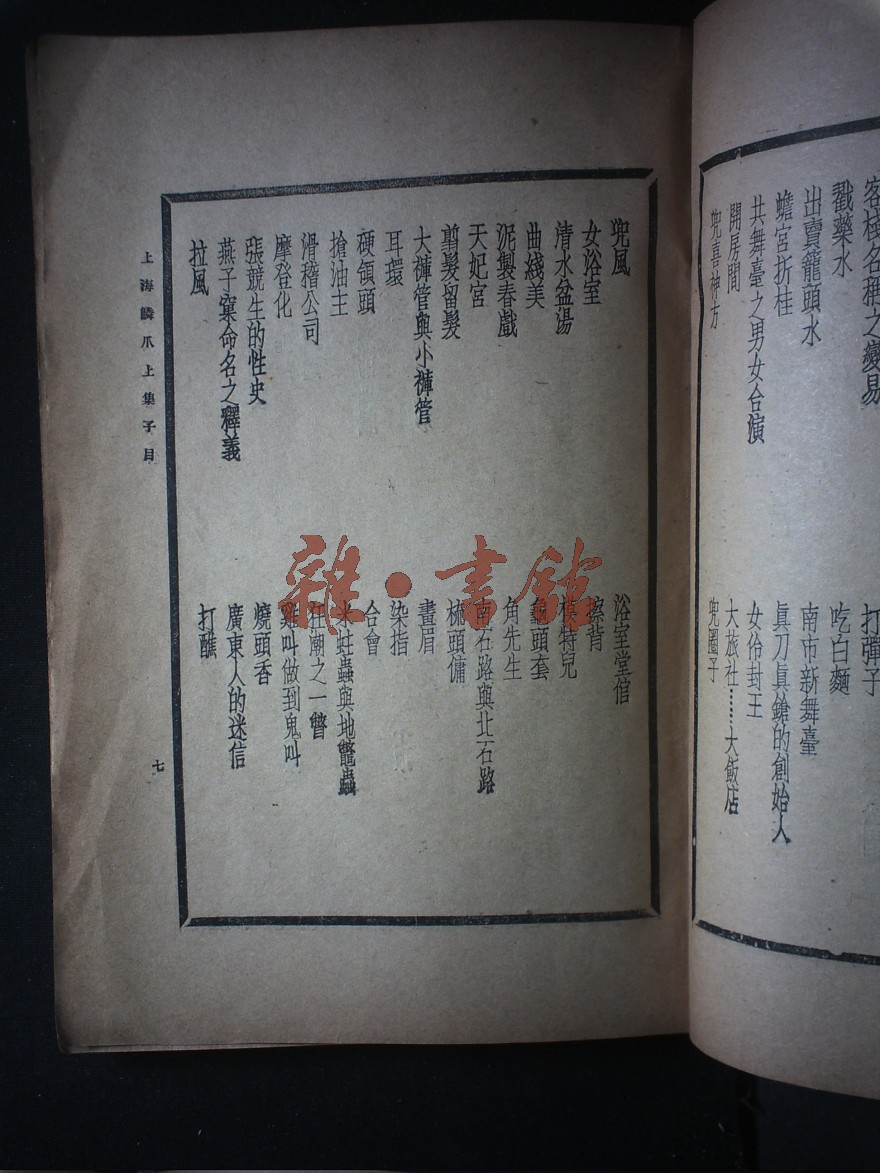 客棧名稱之變易
戳藥水
出賣籠頭水
蟾宮折桂
共舞臺之男女合演
開房間
兜喜神方
打彈子
吃白麵
南市新舞臺
眞刀眞鎗的創始人
女伶封王
大旅社……大飯店
兜圈子
兜風
女浴室
清水盆湯
曲綫美
泥製春戲
天妃宮
剪髮留髮
大褲管與小褲管
耳環
硬領頭
搶油主
滑稽公司
摩登化
張競生的性史
燕子窠命名之釋義
拉風
浴室堂倌
擦背
模特兒
龜頭套
角先生
南石路與北石路
梳頭傭
畫眉
染指
合會
米蛀蟲與地鼈蟲
狂潮之一瞥
雞叫做到鬼叫
燒頭香
廣東人的迷信
打醮
上海鱗爪上集子目
七
雜·書館